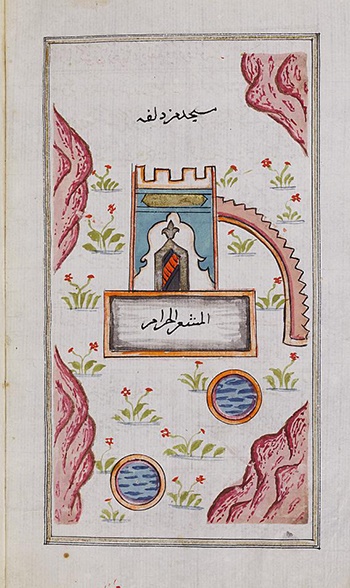 مسجد مزدلفه
المشعر الحرام